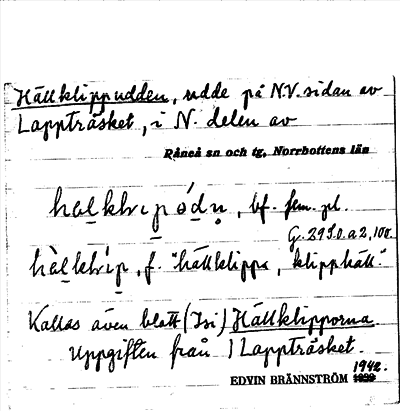 Hällklippudden, udde på N.V. sidan av
Lappträsket, i N. delen av
Råneå sn och tg, Norrbottens län
bf. fem. pl.
G. 2950. a 2, 100.
f. "hällklippa, klipphäll."
Kallas även blott (Isi) Hällklipporna.
Uppgiften från 1 Lappträsket.
1942.
EDVIN BRÄNNSTRÖM 1939